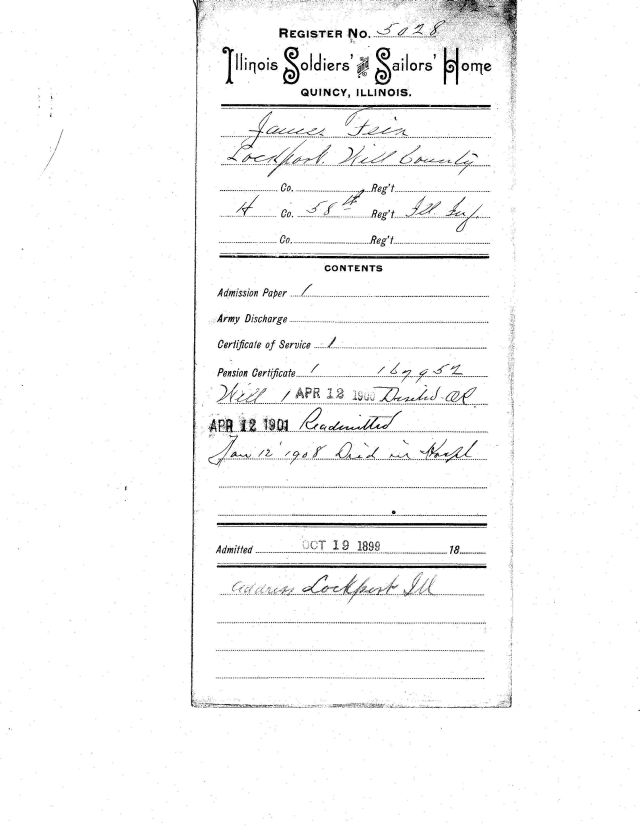 REGISTER No. 5028
Illinois Soldiers' and Sailors' Home
QUINCY, ILLINOIS.
James Fein
Lockport. Will County
Co. Reg't
H Co. 58th Reg't Ill. Inf.
Co. Reg't
CONTENTS
Admission Paper 1
Army Discharge
Certificate of Service 1
Pension Certificate 1 167952
Will 1 APR 12 1900
APR 12 1901 Readmitted
Jan 12 1908 Died in Hospl
Admitted OCT 19 1899 18
address Lockport Ill